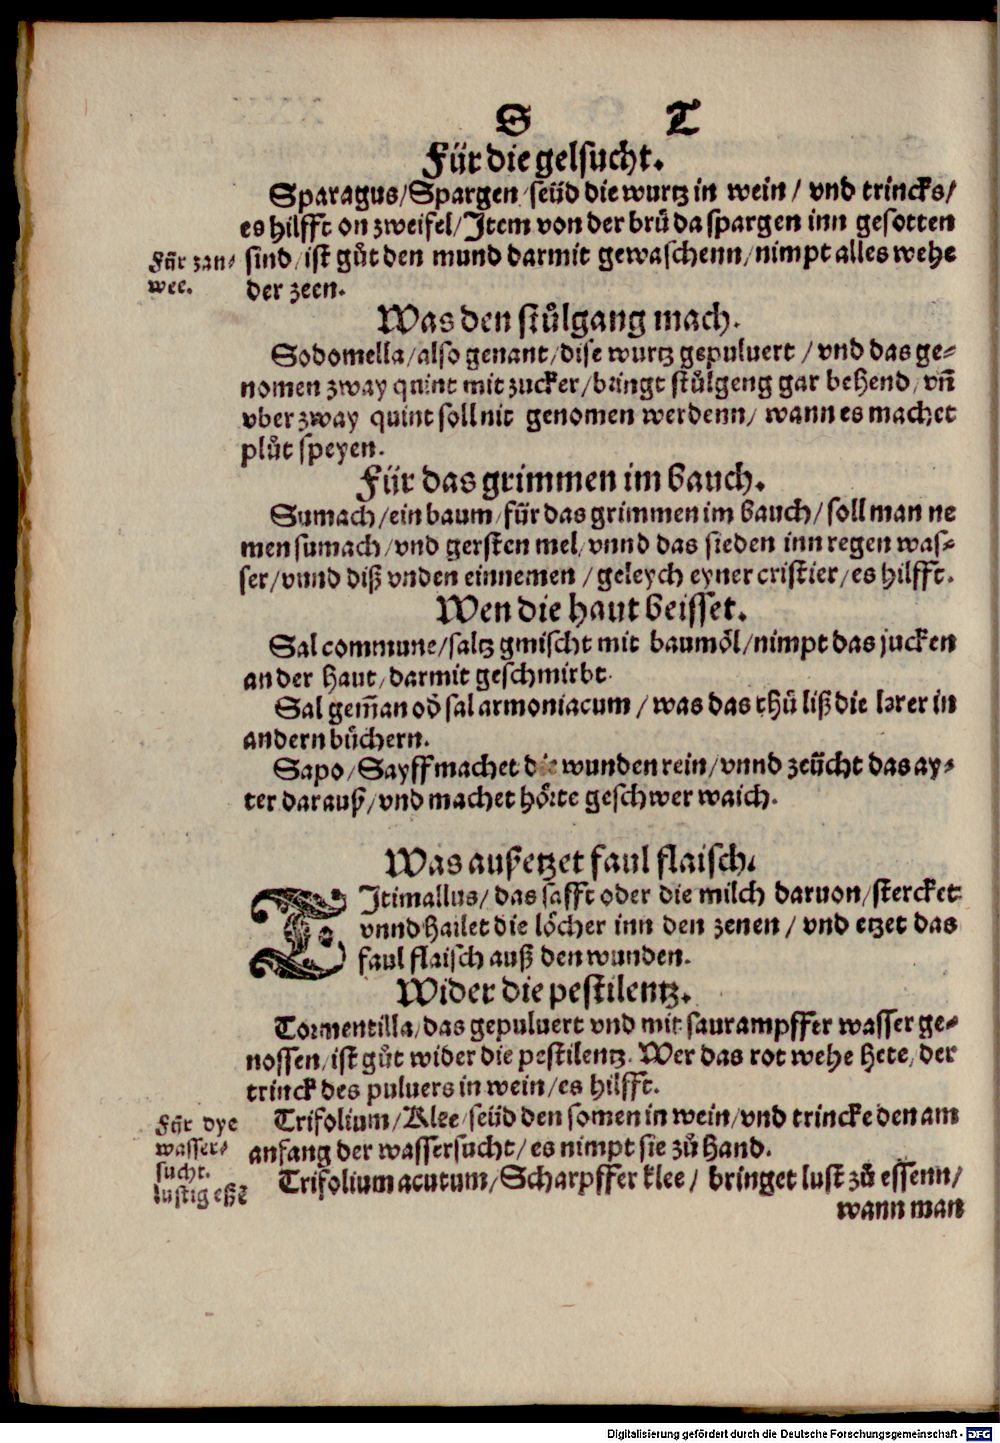 S T
Für die gelsucht.
Sparagus/Spargen/seüd die wurtz in wein/ vnd trincks/
es hilfft on zweifel/Item von der brů da spargen inn gesotten
Für zan⸗
wee.
sind/ist gůt den mund darmit gewaschenn/nimpt alles wehe
der zeen.
Was den stůlgang mach.
Sodomella/also genant/dise wurtz gepuluert /vnd das ge⸗
nomen zway quint mit zucker/bringt stůlgeng gar behend/vñ
vber zway quint soll nit genomen werdenn/ wann es machet
plůt speyen.
Für das grimmen im bauch.
Sumach/ein baum/für das grimmen im bauch/soll man ne
men sumach/vnd gersten mel/vnnd das sieden inn regen was⸗
ser/vnnd diß vnden einnemen /geleych eyner cristier/es hilfft.
Wen die haut beisset.
Sal commune/saltz gmischt mit baumöl/nimpt das jucken
an der haut/darmit geschmirbt.
Sal gem̃an od̕ sal armoniacum /was das thů liß die lerer in
andern bůchern.
Sapo/Sayff machet die wunden rein/vnnd zeücht das ay⸗
ter darauß/vnd machet hörte geschwer waich.
Was außetzet faul flaisch.
TItimallus/das safft oder die milch daruon/stercket
vnnd hailet die löcher inn den zenen /vnd etzet das
faul flaisch auß den wunden.
Wider die pestilentz.
Tormentilla/das gepuluert vnd mit saurampffer wasser ge⸗
nossen/ist gůt wider die pestilentz. Wer das rot wehe hete/der
trinck des puluers in wein/es hilfft.
Für dye
wasser⸗
sucht.
Trifolium/Klee/seüd den somen in wein/vnd trincke den am
anfang der wassersucht/es nimpt sie zů hand.
lustig eßē
Trifolium acutum/Scharpffer klee/ bringet lust zů essenn/
wann man
Digitalisierung gefördert durch die Deutsche Forschungsgemeinschaft - DFG